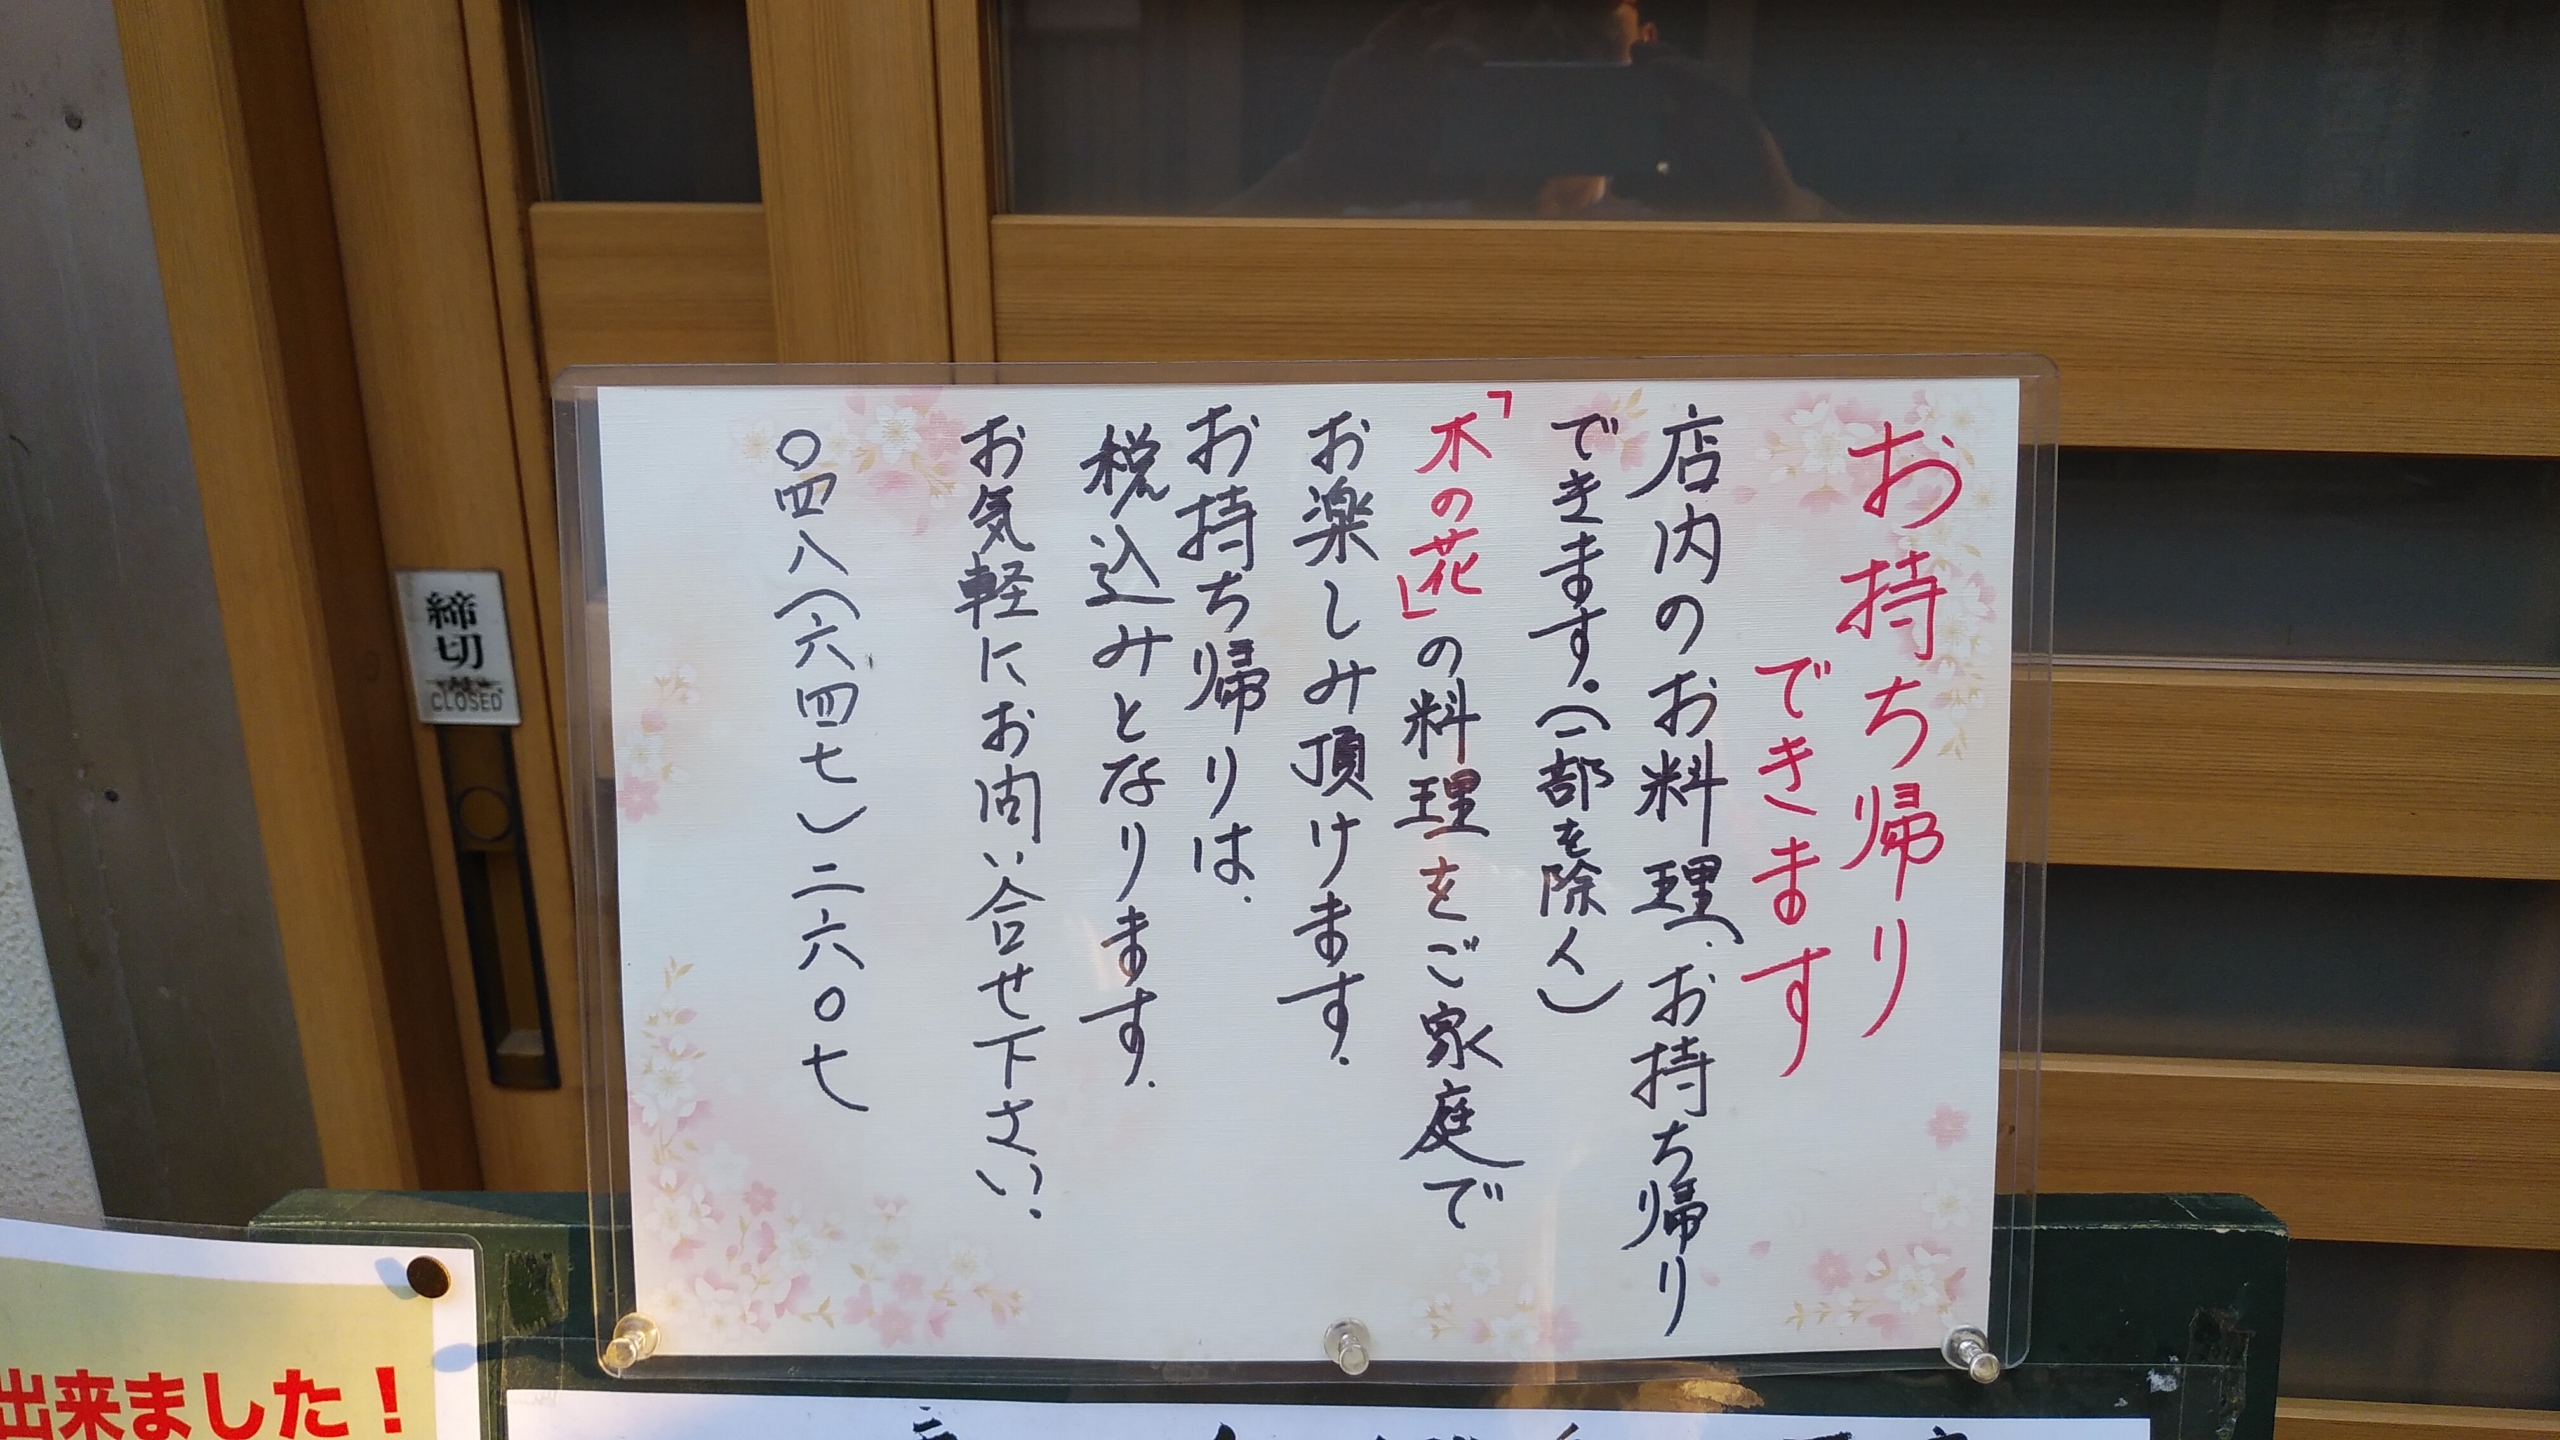 お持ち帰り
できます
店内のお料理、お持ち帰り
できます。(一部を除く)
「木の花」の料理をご家庭で
お楽しみ頂けます.
お持ち帰りは.
税込みとなります.
お気軽にお問い合せ下さい.
〇四八(六四七)二六〇七
締切
CLOSED
出来ました!